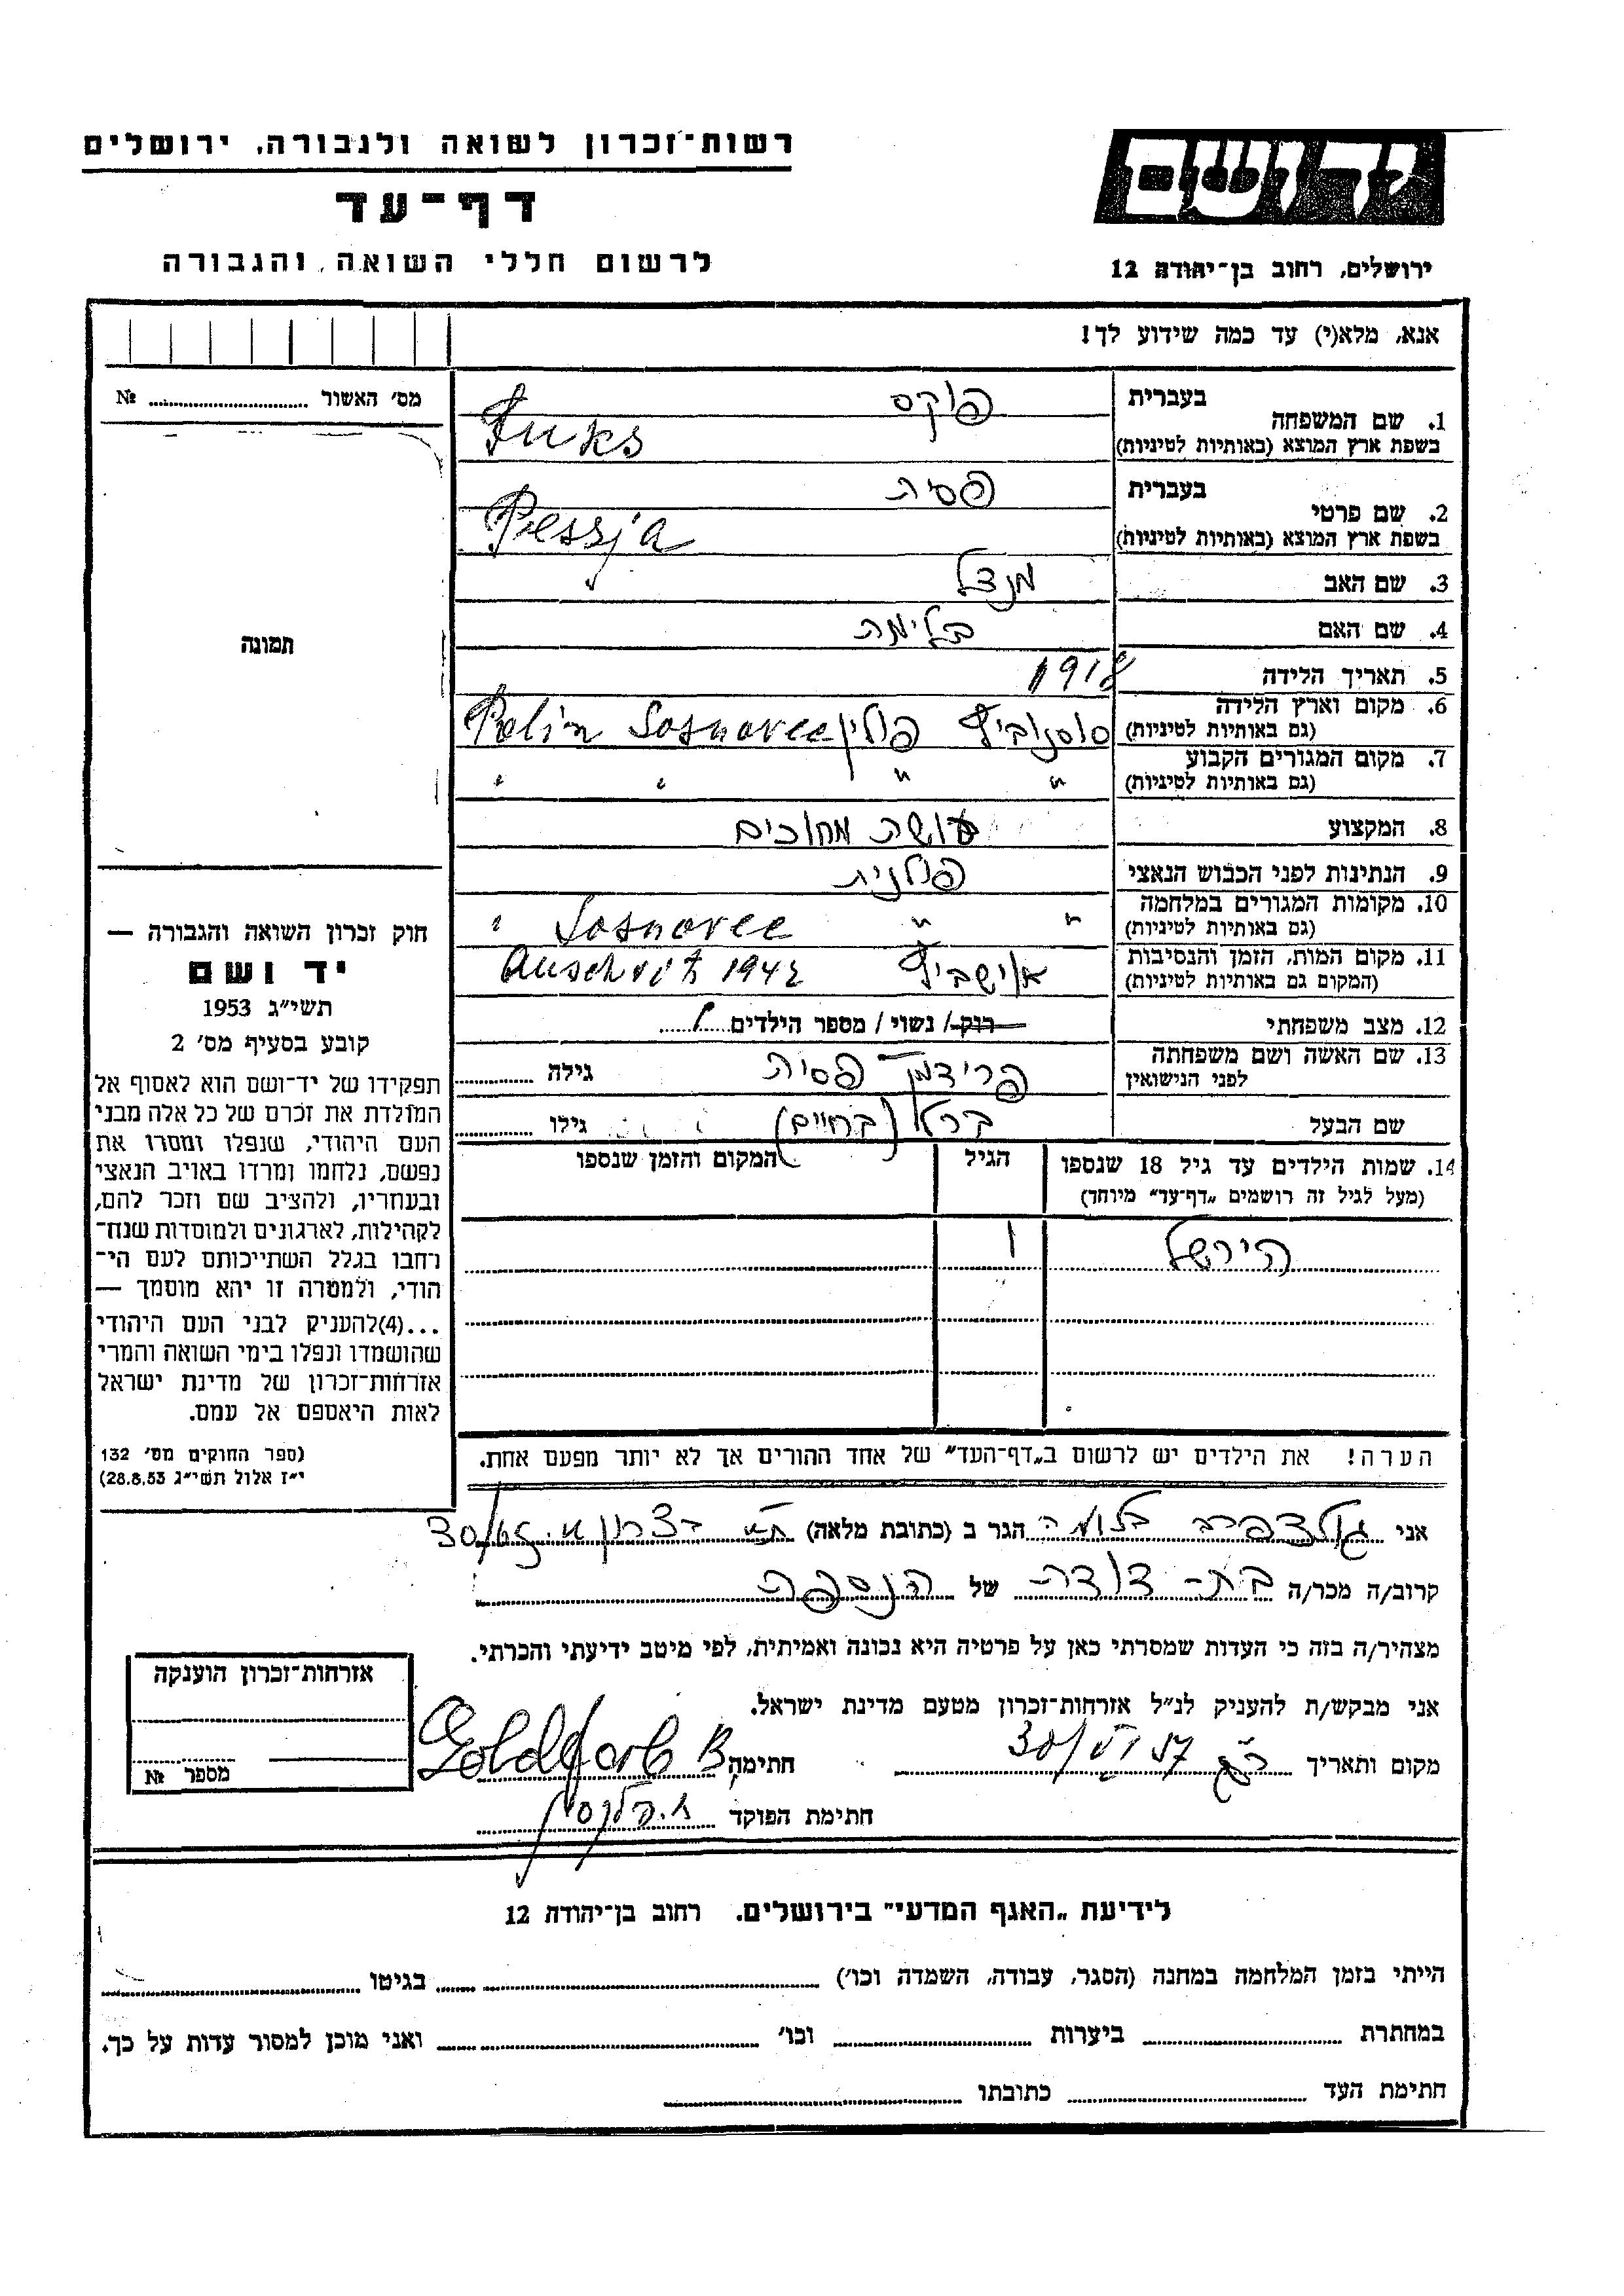 רשות־זכרון לשואה ולגבורה, ירושלים
יד ושם
דף־עד
לרשום חללי השואה והגבורה
ירושלים, רחוב בן־יהודה 12
אנא, מלא(י) עד כמה שידוע לך!
מס׳ האשור № 
בעברית
פוקס
1. שם המשפחה
בשפת ארץ המוצא (באותיות לטיניות)
Fuks
בעברית
פסית
2. שם פרטי
בשפת ארץ המוצא (באותיות לטיניות)
Pessja
3. שם האב
מנדל
4. שם האם
בלימה
5. תאריך הלידה
1918
6. מקום וארץ הלידה
(גם באותיות לטיניות)
סוסנוביץ פולין Polin Sosnovec
7. מקום המגורים הקבוע
(גם באותיות לטיניות)
" " " "
8. המקצוע
עושת מחוכים
9. הנתינות לפני הכבוש הנאצי
פולנית
10. מקומות המגורים במלחמה
(גם באותיות לטיניות)
" " Sosnovec "
11. מקום המות, הזמן והנסיבות
(המקום גם באותיות לטיניות)
אושביץ 1942
12. מצב משפחתי
רוק / נשוי / מספר הילדים 1
13. שם האשה ושם משפחתה
לפני הנישואין
פרידמן פסית גילה
שם הבעל
ברא (בחיים) גילו
14. שמות הילדים עד גיל 18 שנספו
(מעל לגיל זה רושמים „דף־עד״ מיוחד)
הגיל
המקום והזמן שנספו
הירשל 1
הערה! את הילדים יש לרשום ב„דף־העד״ של אחד ההורים אך לא יותר מפעם אחת.
תמונה
חוק זכרון השואה והגבורה —
יד ושם
תשי״ג 1953
קובע בסעיף מס׳ 2
תפקידו של יד־ושם הוא לאסוף אל
המולדת את זכרם של כל אלה מבני
העם היהודי, שנפלו ומסרו את
נפשם, נלחמו ומרדו באויב הנאצי
ובעוזריו, ולהציב שם וזכר להם,
לקהילות, לארגונים ולמוסדות שנח־
רבו בגלל השתייכותם לעם הי־
הודי, ולמטרה זו יהא מוסמך —
...(4) להעניק לבני העם היהודי
שהושמדו ונפלו בימי השואה והמרי
אזרחות־זכרון של מדינת ישראל
לאות היאספם אל עמם.
(ספר החוקים מס׳ 132
י״ז אלול תשי״ג 28.8.53)
אני גולדפרב בלומה הגר ב (כתובת מלאה)
קרוב/ה מכר/ה בת-דודה של הנספה
מצהיר/ה בזה כי העדות שמסרתי כאן על פרטיה היא נכונה ואמיתית, לפי מיטב ידיעתי והכרתי.
אני מבקש/ת להעניק לנ״ל אזרחות־זכרון מטעם מדינת ישראל.
מקום ותאריך 30/VI 57 חתימה Goldfarb B
חתימת הפוקד
אזרחות־זכרון הוענקה
מספר №
לידיעת „האגף המדעי״ בירושלים. רחוב בן־יהודה 12
הייתי בזמן המלחמה במחנה (הסגר, עבודה, השמדה וכו׳) בגיטו
במחתרת ביערות וכו׳ ואני מוכן למסור עדות על כך.
חתימת העד כתובתו